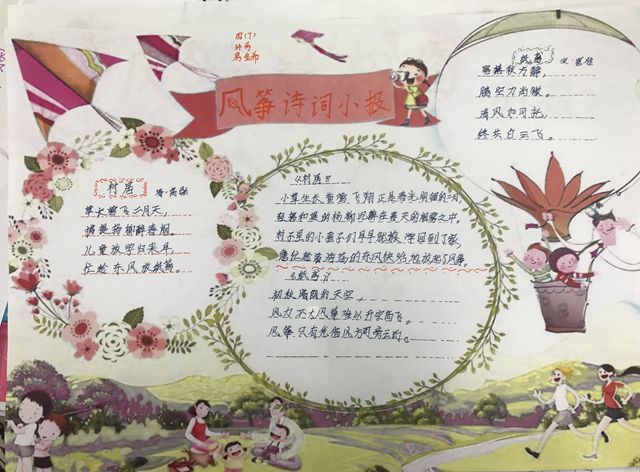 风筝诗词小报
村居 清·高鼎
草长莺飞二月天,
拂堤杨柳醉春烟。
儿童放学归来早,
忙趁东风放纸鸢。
《村居》
小草生长黄莺飞翔正是春光明媚的二月
堤的杨柳沉醉在春天的烟雾之中,
村子里的小孩子们早早就放学回到了家
急忙趁着浩荡的东风快地放起了风筝。
《纸鸢》
初秋清朗的天空,
风力不大风筝难以升空高飞。
风筝只有凭借风方可旁云行。
纸鸢 宋·寇准
碧落秋方静,
腾空力尚微。
清风如可托,
终共白云飞。